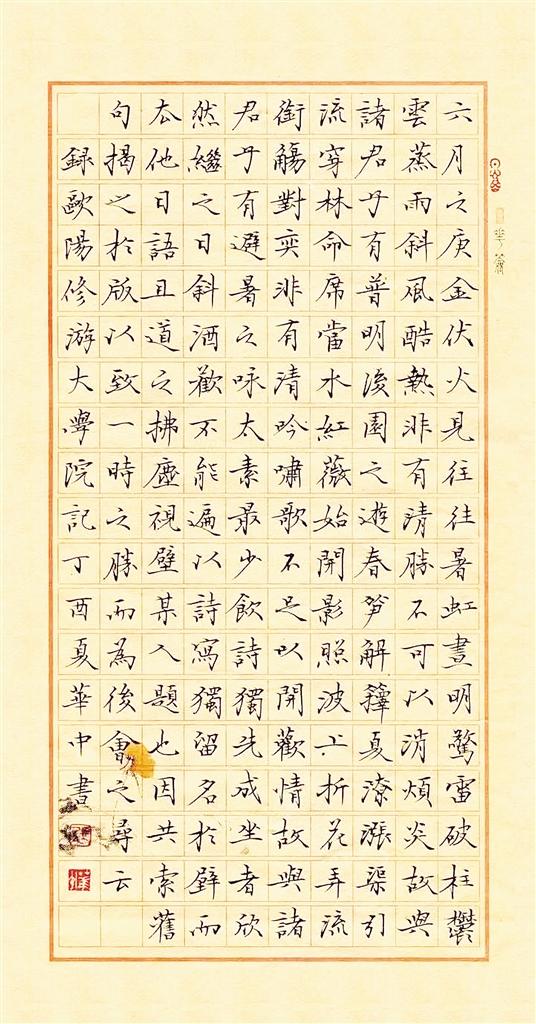 六月之庚金伏火見往往暑虹晝明驚雷破柱鬱
雲蒸雨斜風酷熱非有清勝不可以消煩炎故與
諸君子有普明後園之遊春笋解籜夏潦漲渠引
流穿林命席當水紅薇始開影照波上折花弄流
銜觴對奕非有清吟嘯歌不足以開歡情故與諸
君子有避暑之咏太素最少飲詩獨先成坐者欣
然繼之日斜酒歡不能遍以詩寫獨留名於壁而
厺他日語且道之拂塵視壁某人題也因共索舊
句揭之於版以致一時之勝而為後會之尋云
録歐陽修游大學院記丁酉夏華中書